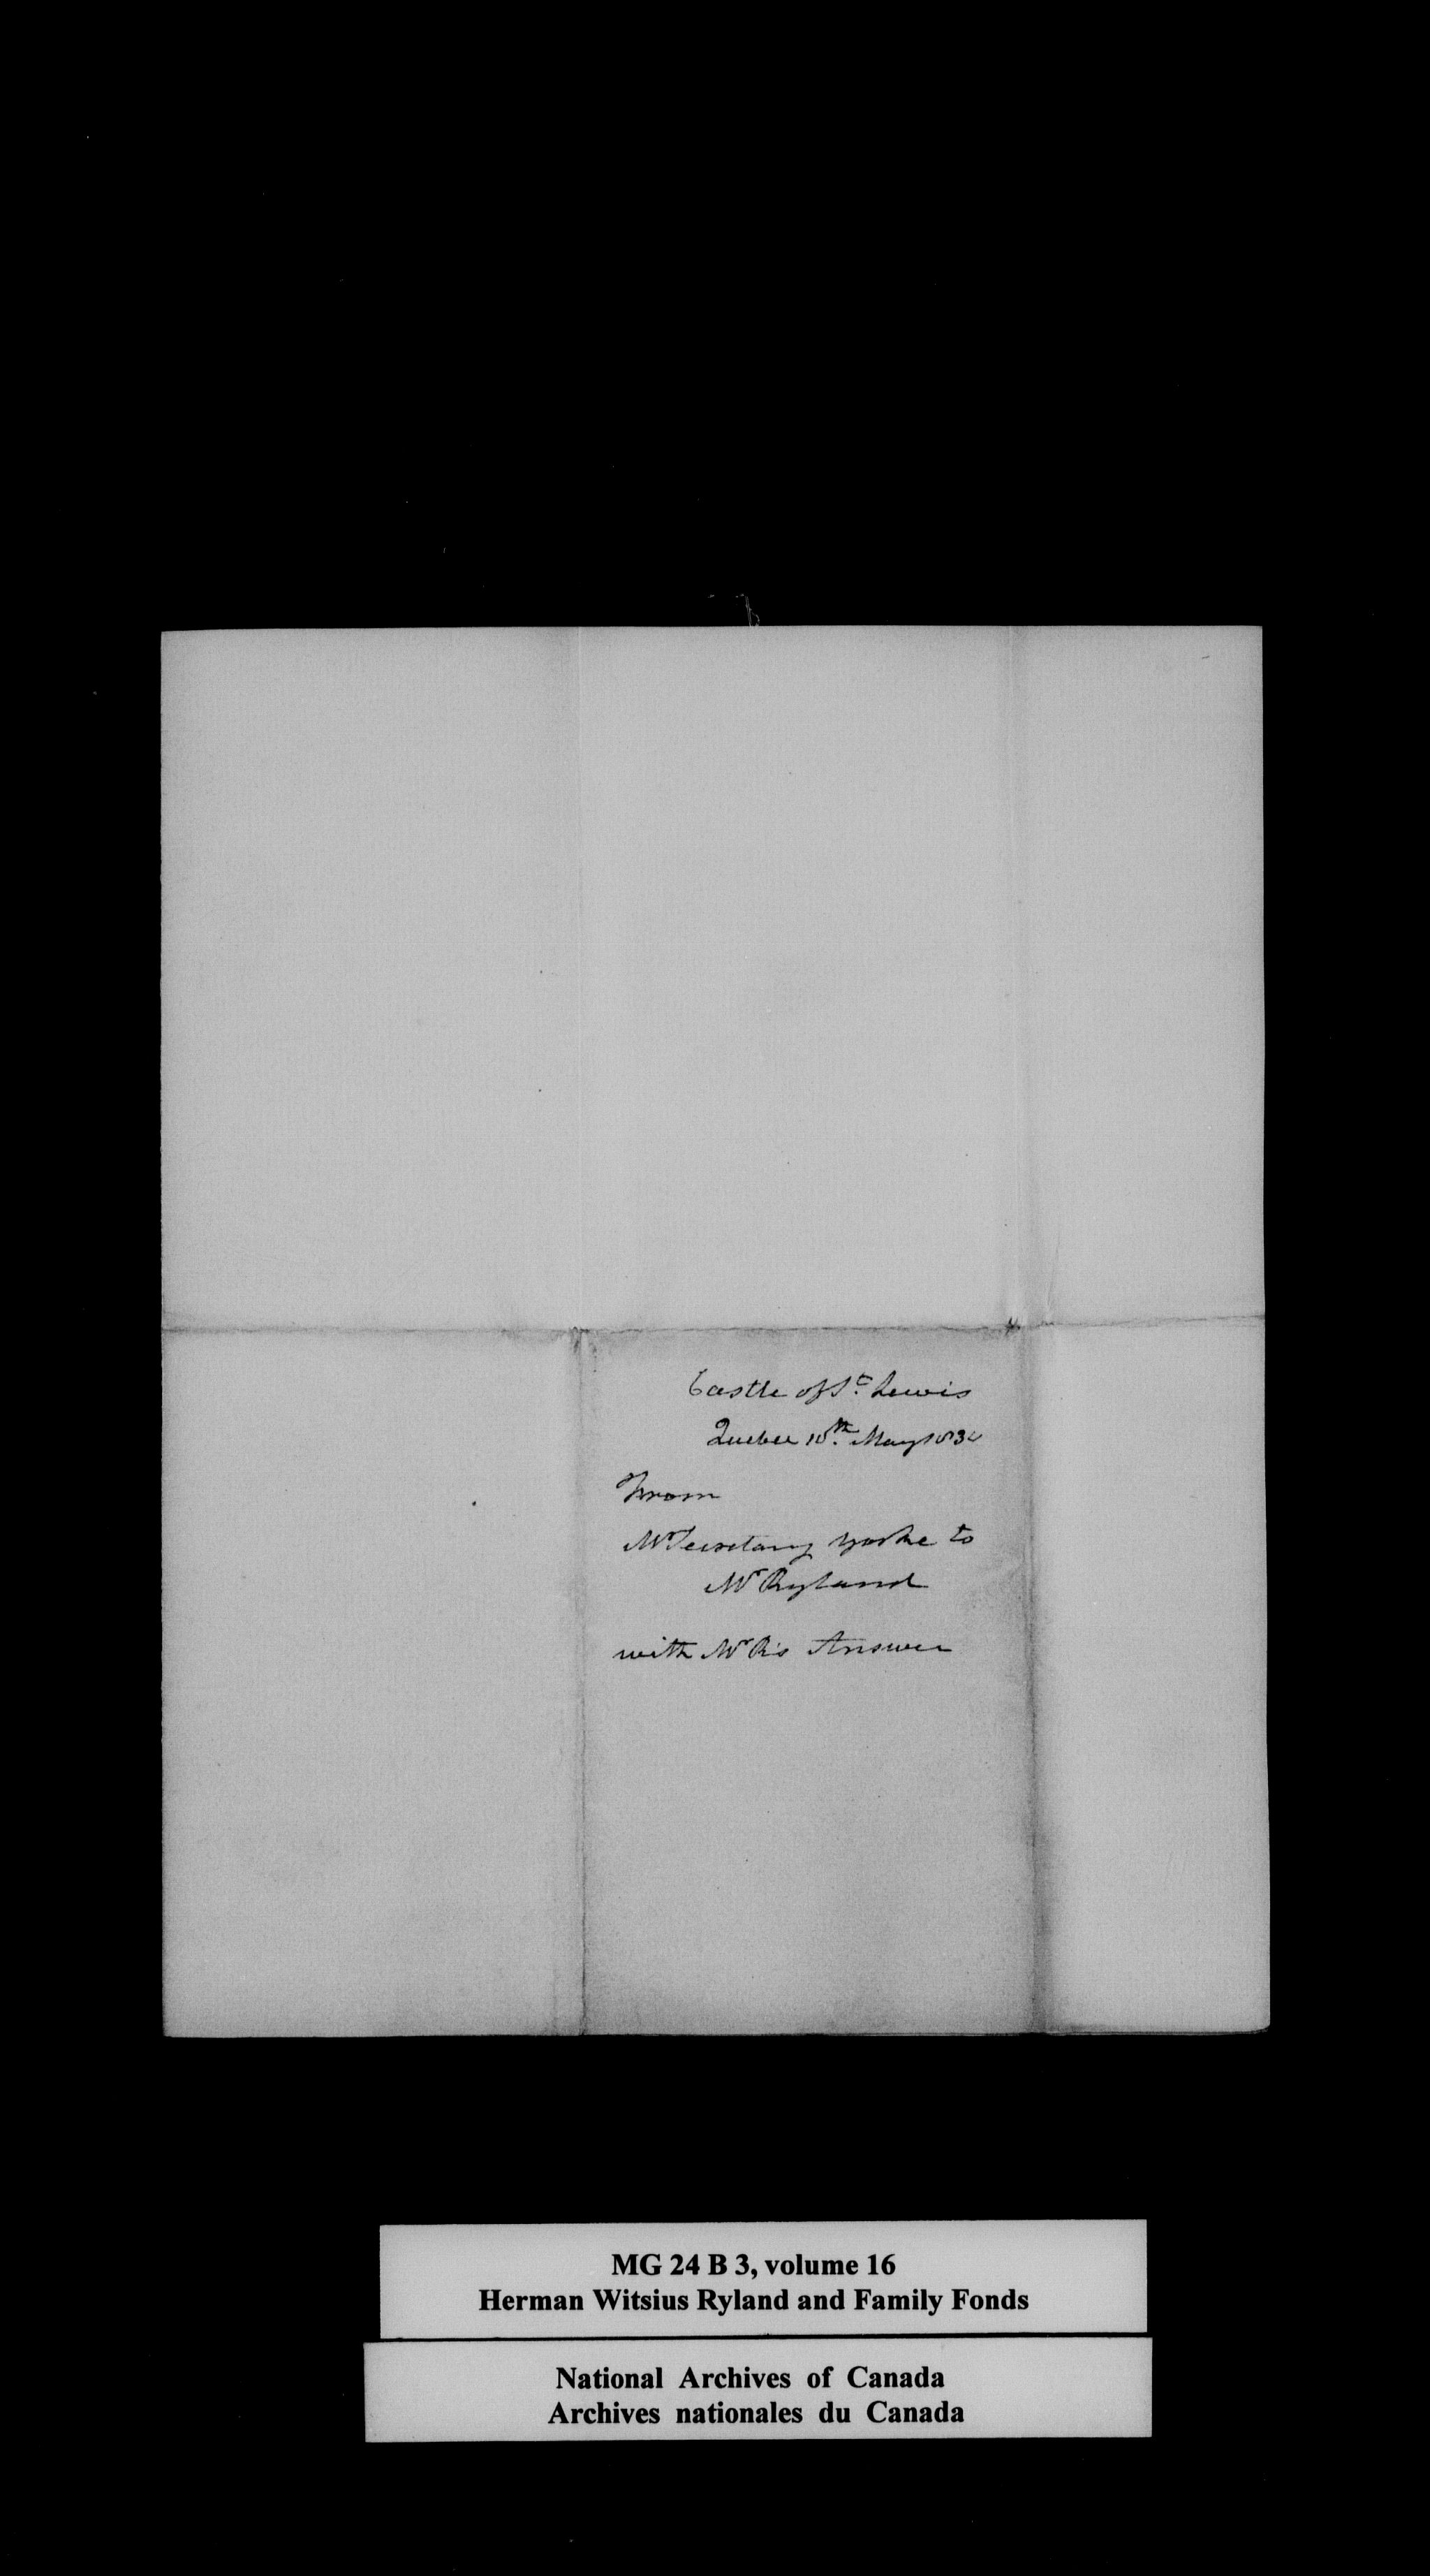 Castle of St. Lewis
Quebec 10th. May 183
From
Mr Secretary Yorke to
Mr Ryland
with Mr R's Answer
MG 24 B 3, volume 16
Herman Witsius Ryland and Family Fonds
National Archives of Canada
Archives nationales du Canada